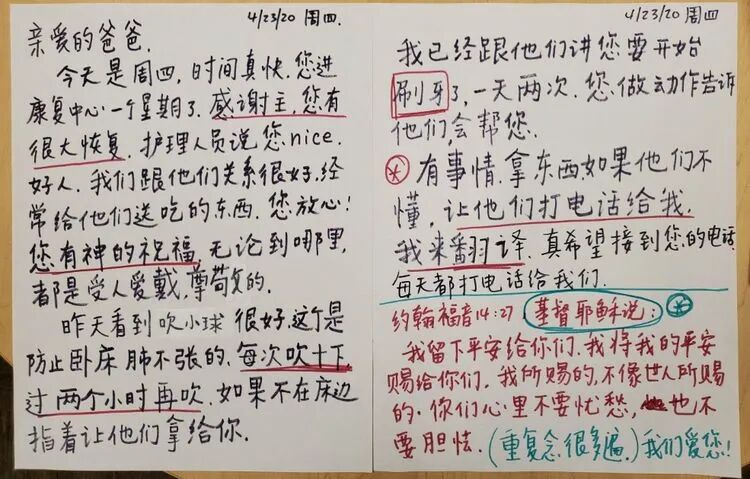 4/23/20 周四.
亲爱的爸爸,
今天是周四,时间真快.您进
康复中心一个星期了.感谢主,您有
很大恢复.护理人员说您nice.
好人.我们跟他们关系很好.经
常给他们送吃的东西.您放心!
您有神的祝福,无论到哪里,
都是受人爱戴,尊敬的.
昨天看到吹小球很好.这个是
防止卧床肺不张的.每次吹十下,
过两个小时再吹.如果不在床边
指着让他们拿给你.
4/23/20 周四
我已经跟他们讲您要开始
刷牙了,一天两次.您做动作告诉
他们,会帮您.
有事情.拿东西如果他们不
懂,让他们打电话给我.
我来翻译.真希望接到您的电话.
每天都打电话给我们.
约翰福音14:27.基督耶稣说:
我留下平安给你们.我将我的平安
赐给你们.我所赐的,不像世人所赐
的.你们心里不要忧愁,也不
要胆怯.(重复念,很多遍.)我们爱您!